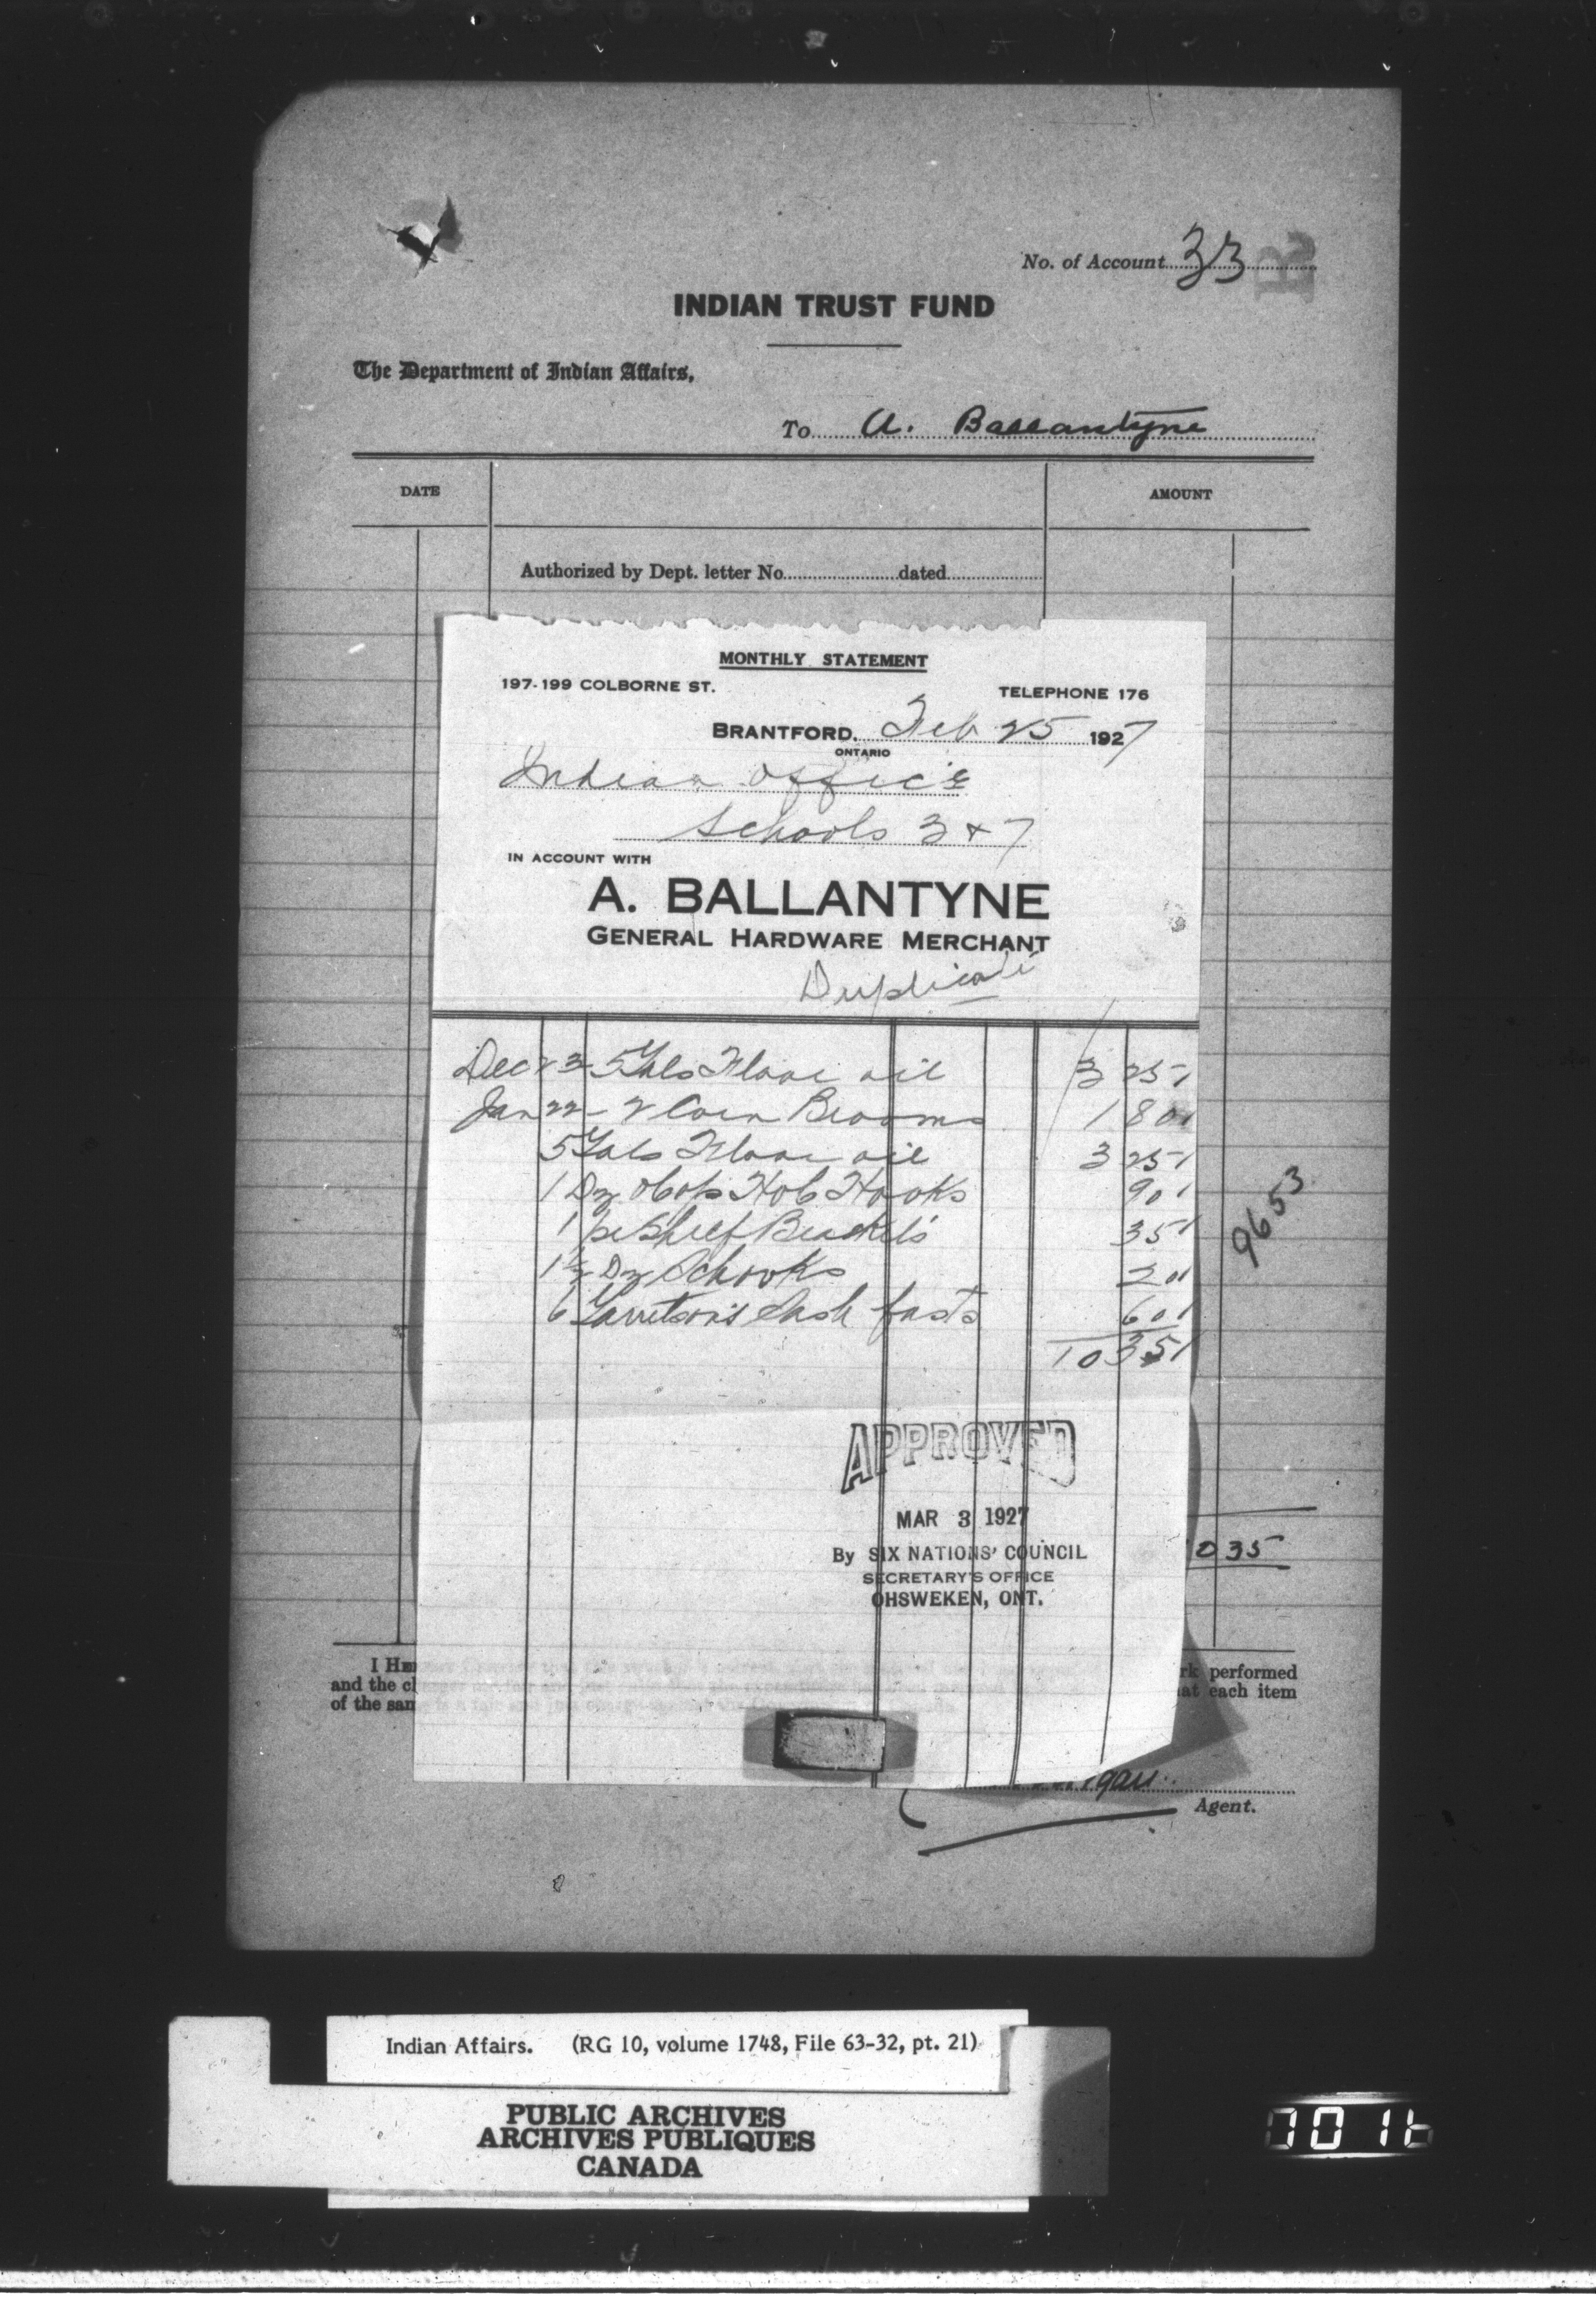 No. of Account 33
R
INDIAN TRUST FUND
The Department of Indian Affairs,
To A. Ballantyne
DATE AMOUNT
Authorized by Dept. letter No. dated
MONTHLY STATEMENT
197-199 COLBORNE ST. TELEPHONE 176
BRANTFORD, Feb 25 1927
ONTARIO
Indian Office
Schools 3 & 7
IN ACCOUNT WITH
A. BALLANTYNE
GENERAL HARDWARE MERCHANT
Duplicate
Dec 23 5 Gals Floor oil 3 25
Jan 22 - 2 Corn Brooms 1 80
5 Gals Floor oil 3 25
1 Dz Hooks 90
1 pr Shelf Brackets 35
1 1/2 Dz 20
6 sash fasts 60
10 35
9653
APPROVED
MAR 3 1927
By SIX NATIONS' COUNCIL
SECRETARY'S OFFICE
OHSWEKEN, ONT.
0 35
I HE
performed
and the
at each item
of the
Agent.
Indian Affairs. (RG 10, volume 1748, File 63-32, pt. 21)
PUBLIC ARCHIVES
ARCHIVES PUBLIQUES
CANADA